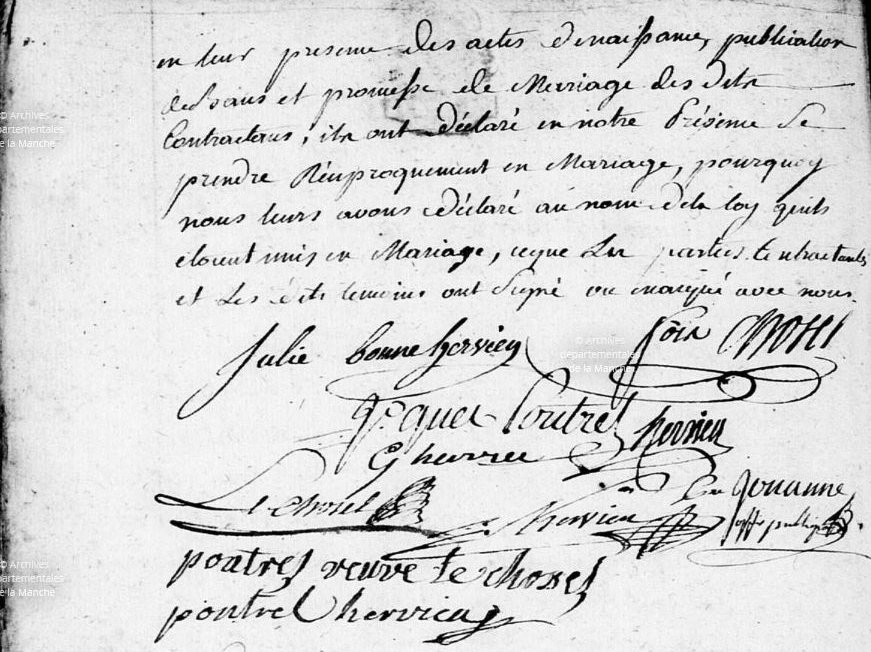 en leur presence des actes de naissance, publication
de bans et promesse de Marriage des dits
Contractans, ils ont déclaré en notre Présence Se
prendre Réciproquement en Mariage, pourquoy
nous leurs avons déclaré au nom de la loy quils
etoient unis en Mariage, ceque Les parties Contractantes
et Les dits temoins ont Signé ou marqué avec nous.
Julie bonne hervieu
jacques poutrel hervieu
G hervieu
Le Chosel hervieu jouanne
off publique
poutrel veuve le chosel
poutrel hervieu
© Archives
départementales
de la Manche
© Archives
départementales
de la Manche
© Archives
départementales
de la Manche